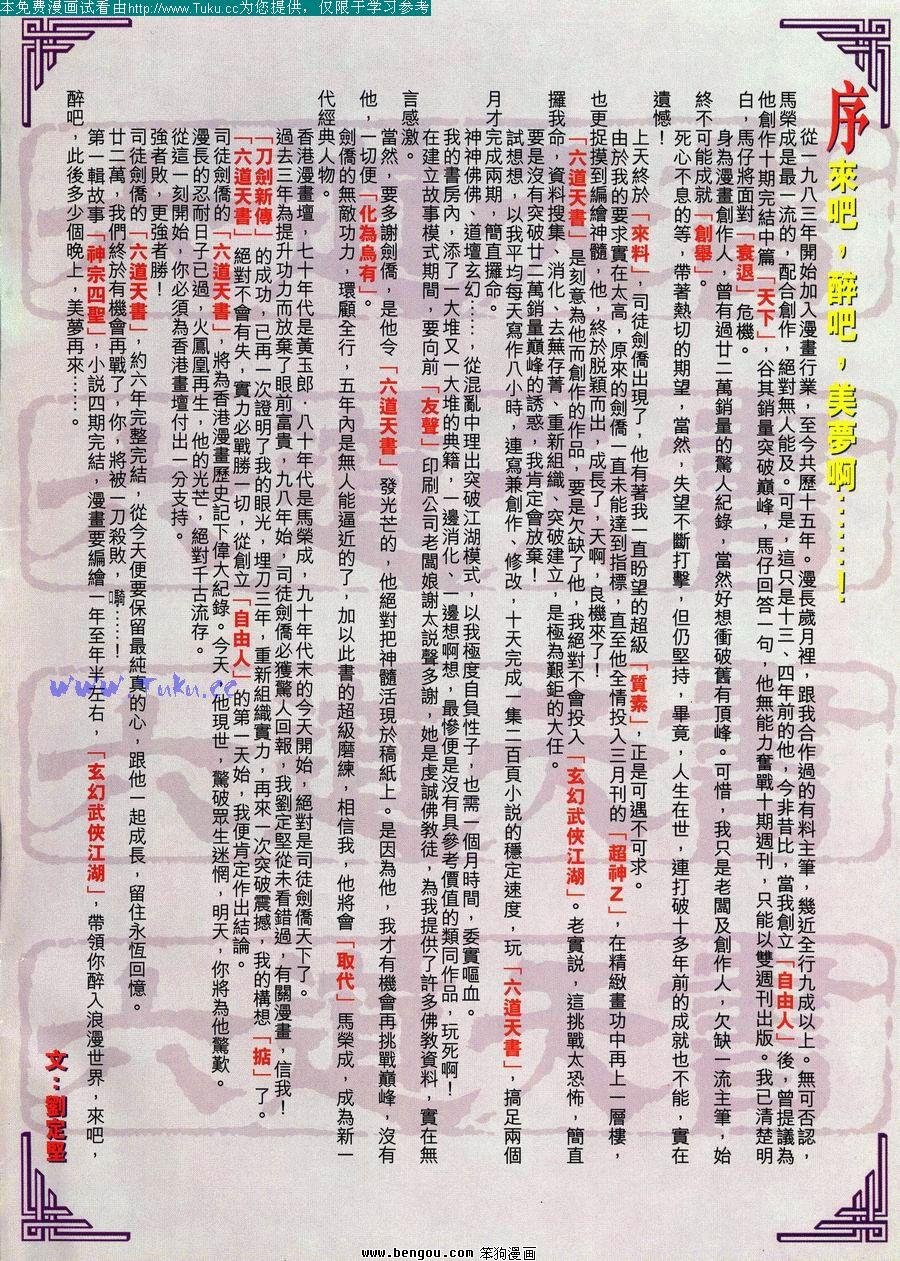 本免费漫画试看由http://www.Tuku.cc为您提供，仅限于学习参考
序
來吧，醉吧，美夢啊……！
從一九八三年開始加入漫畫行業，至今共歷十五年。漫長歲月裡，跟我合作過的有料主筆，幾近全行九成以上。無可否認，
馬榮成是最一流的，配合創作，絕對無人能及。可是，這只是十三、四年前的他，今非昔比，當我創立「自由人」後，曾提議為
他創作十期完結中篇「天下」，谷其銷量突破巔峰，馬仔回答一句，他無能力奮戰十期週刊，只能以雙週刊出版。我已清楚明
白，馬仔將面對「衰退」危機。
身為漫畫創作人，曾有過廿二萬銷量的驚人紀錄，當然好想衝破舊有頂峰。可惜，我只是老闆及創作人，欠缺一流主筆，始
終不可能成就「創舉」。
死心不息的等，帶著熱切的期望，當然，失望不斷打擊，但仍堅持，畢竟，人生在世，連打破十多年前的成就也不能，實在
遺憾！
上天終於「來料」，司徒劍僑出現了，他有著我一直盼望的超級「質素」，正是可遇不可求。
由於我的要求實在太高，原來的劍僑一直未能達到指標，直至他全情投入三月刊的「超神Z」，在精緻畫功中再上一層樓，
也更捉摸到編繪神髓，他，終於脫穎而出，成長了，天啊，良機來了！
「六道天書」是刻意為他而創作的作品，要是欠缺了他，我絕對不會投入「玄幻武俠江湖」。老實說，這挑戰太恐怖，簡直
攞我命，資料搜集、消化、去蕪存菁、重新組織、突破建立，是極為艱鉅的大任。
要是沒有突破廿二萬銷量巔峰的誘惑，我肯定會放棄！
試想想，以我平均每天寫作八小時，連寫兼創作、修改，十天完成一集二百頁小說的穩定速度，玩「六道天書」，搞足兩個
月才完成兩期，簡直攞命。
神神佛佛、道壇玄幻……，從混亂中理出突破江湖模式，以我極度自負性子，也需一個月時間，委實嘔血。
我的書房內，添了一大堆又一大堆的典籍，一邊消化、一邊想啊想，最慘便是沒有具參考價值的類同作品，玩死啊！
在建立故事模式期間，要向前「友聲」印刷公司老闆娘謝太說聲多謝，她是虔誠佛教徒，為我提供了許多佛教資料，實在無
言感激。
當然，要多謝劍僑，是他令「六道天書」發光芒的，他絕對把神髓活現於稿紙上。是因為他，我才有機會再挑戰巔峰，沒有
他，一切便「化為烏有」。
劍僑的無敵功力，環顧全行，五年內是無人能逼近的了，加以此書的超級磨練，相信我，他將會「取代」馬榮成，成為新一
代經典人物。
香港漫畫壇，七十年代是黃玉郎．八十年代是馬榮成，九十年代末的今天開始，絕對是司徒劍僑天下了。
過去三年為提升功力而放棄了眼前富貴，九八年始，司徒劍僑必獲驚人回報，我劉定堅從未看錯過，有關漫畫，信我！
「刀劍新傳」的成功，已再一次證明了我的眼光，埋刀三年，重新組織實力，再來一次突破震撼，我的構想「掂」了。
「六道天書」絕對不會有失，實力必戰勝一切，從創立「自由人」的第一天始，我便肯定作出結論。
司徒劍僑的「六道天書」，將為香港漫畫歷史記下偉大紀錄。今天，他現世，驚破眾生迷惘，明天，你將為他驚歎。
漫長的忍耐日子已過，火鳳凰再生，他的光芒，絕對千古流存。
從這一刻開始，你必須為香港畫壇付出一分支持。
強者敗，更強者勝！
司徒劍僑的「六道天書」，約六年完整完結，從今天便要保留最純真的心，跟他一起成長，留住永恆回憶。
廿二萬，我們終於有機會再戰了，你，將被一刀殺敗，嘶……！
第一輯故事「神宗四聖」，小說四期完結，漫畫要編繪一年至年半左右，「玄幻武俠江湖」，帶領你醉入浪漫世界，來吧，
醉吧，此後多少個晚上，美夢再來……。
文：劉定堅
www.Tuku.cc
www.bengou.com 笨狗漫画